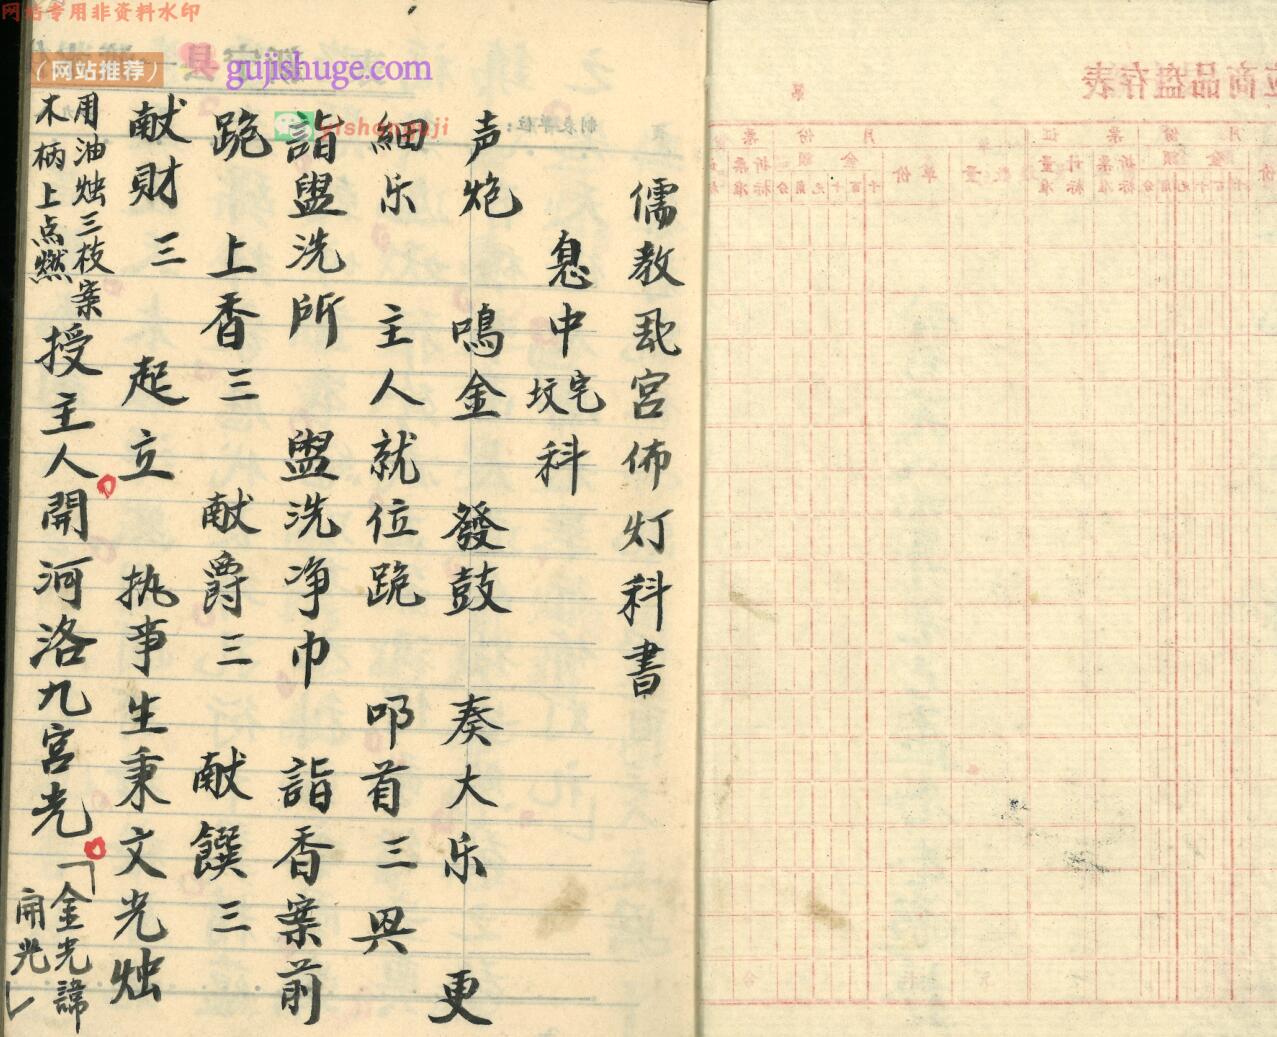 网站专用非资料水印
（网站推荐）
gujishuge.com
yishengguji
制表单位：
儒教乱宫佈灯科書
息中宅坟科
声炮 鳴金 發鼓 奏大乐 更
细乐 主人就位跪 叩首三 兴
詣盥洗所 盥洗净巾 詣香案前
跪 上香三 献爵三 献饌三
献财三 起立 执事生秉文光烛
用油烛三枝案
木柄上点燃
授主人開河洛九宫光
「金光諱
開光」
商品盘存表